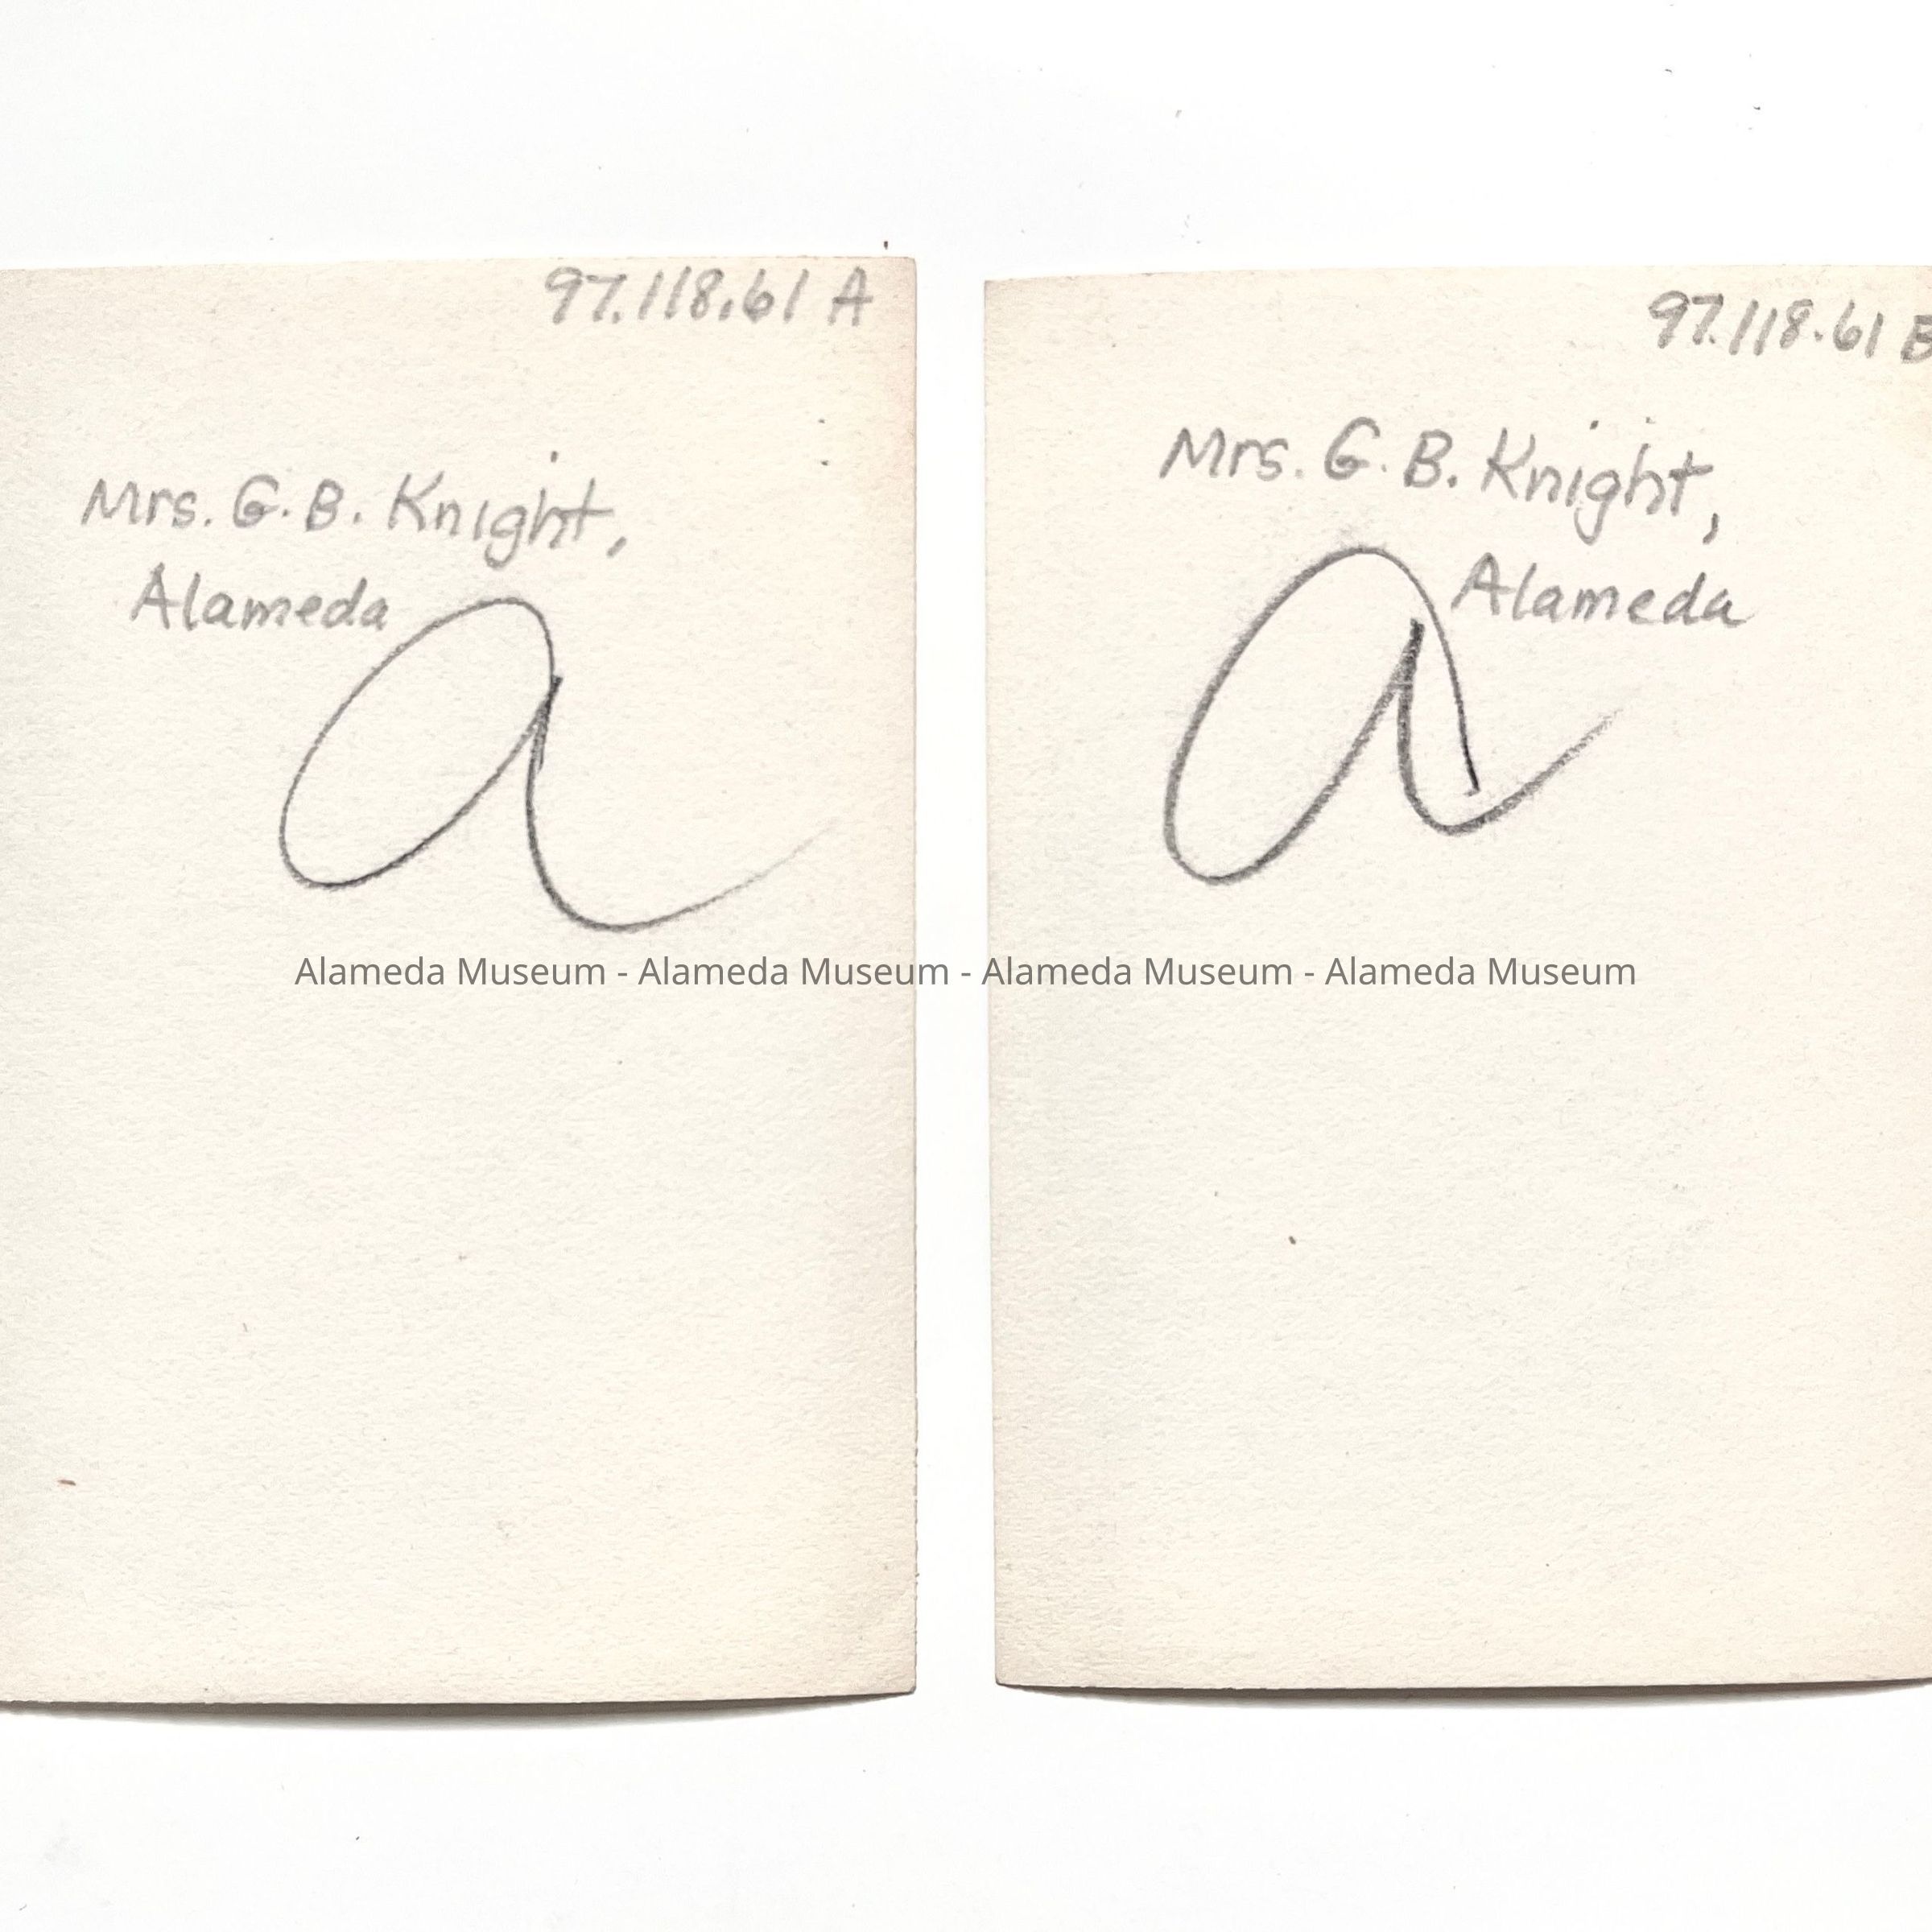 97.118.61 A
Mrs. G. B. Knight,
Alameda
a
97.118.61 B
Mrs. G. B. Knight,
Alameda
a
Alameda Museum - Alameda Museum - Alameda Museum - Alameda Museum